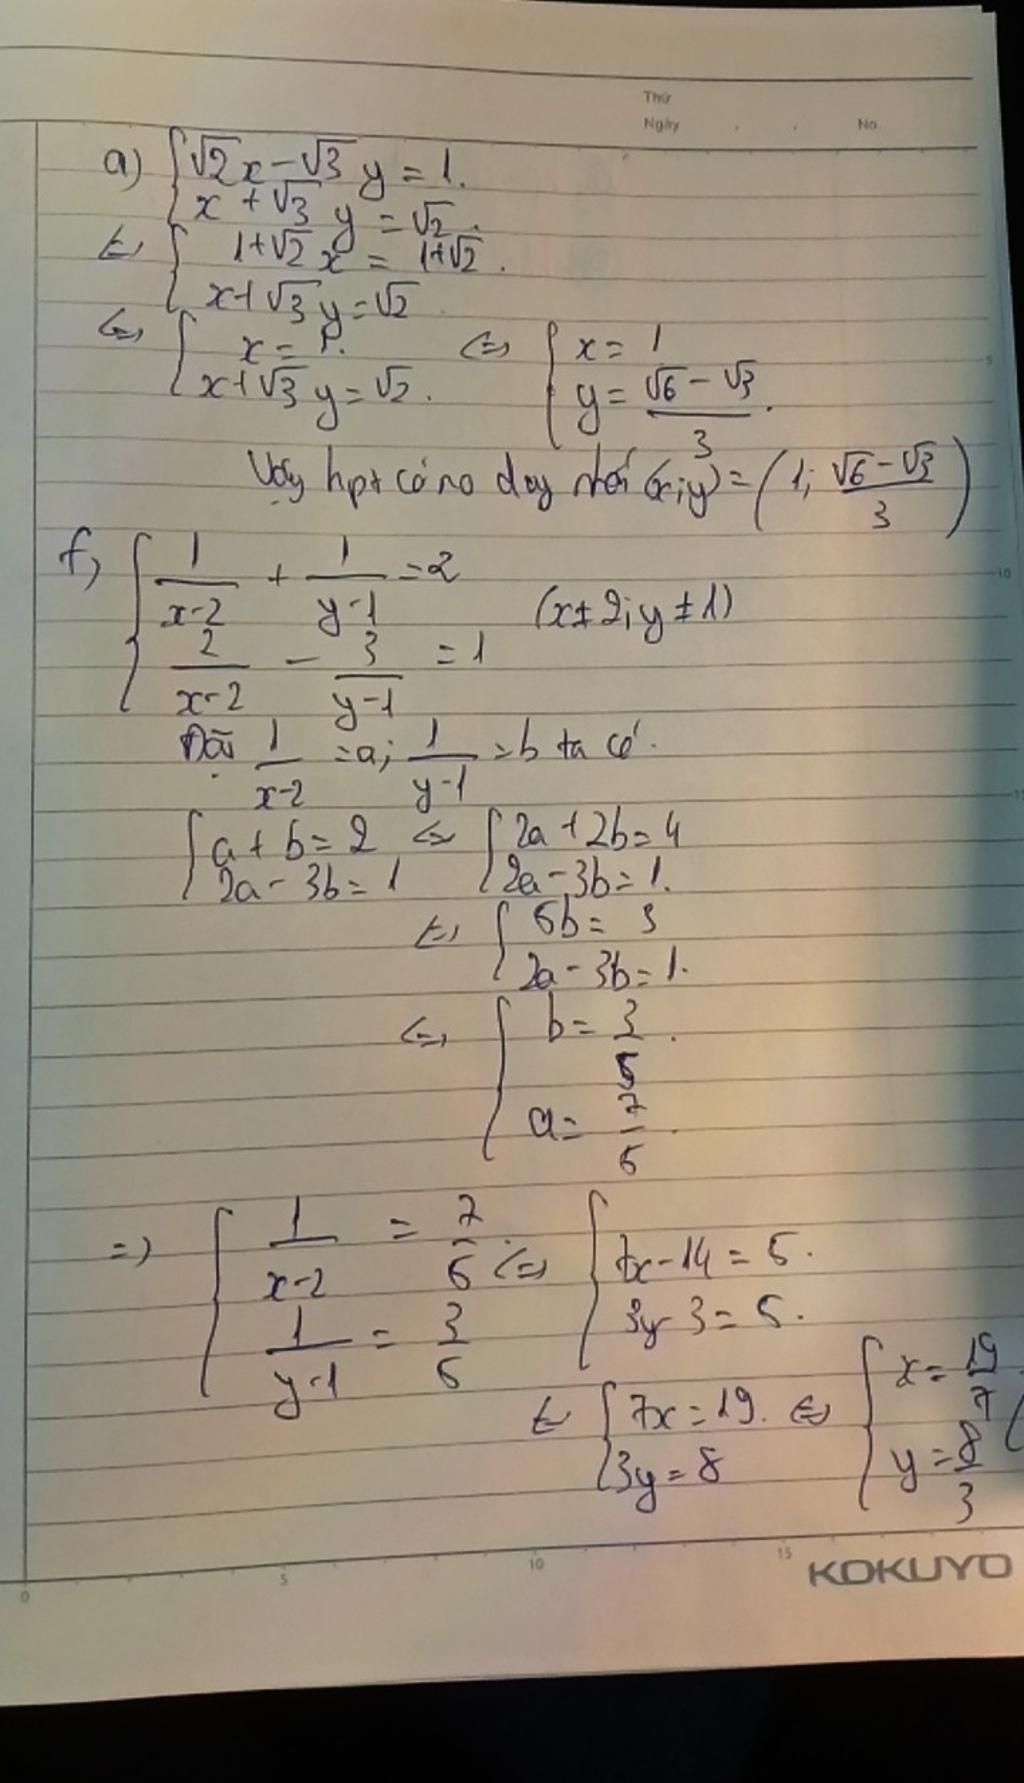 Thứ
Ngày . . No.
a) { √2x - √3y = 1.
x + √3y = √2.
⇔ { 1+√2 x = 1+√2.
x+√3y=√2
⇔ { x = 1.
x+√3y=√2.
⇔ { x = 1
y = (√6 - √3)/3.
Vậy hpt có no duy nhất (x;y) = (1; (√6 - √3)/3)
f, { 1/(x-2) + 1/(y-1) = 2
2/(x-2) - 3/(y-1) = 1
(x≠2; y≠1)
Đặt 1/(x-2) = a; 1/(y-1) = b ta có.
{ a + b = 2 ⇔ { 2a + 2b = 4
2a - 3b = 1 2a - 3b = 1.
⇔ { 5b = 3
2a - 3b = 1.
⇔ { b = 3/5.
a = 7/5.
=> { 1/(x-2) = 7/5 ⇔ { 7x-14 = 5.
1/(y-1) = 3/5 3y-3 = 5.
⇔ { 7x = 19. ⇔ { x = 19/7
3y = 8 y = 8/3 (
0 5 10 15 KOKUYO
5
10